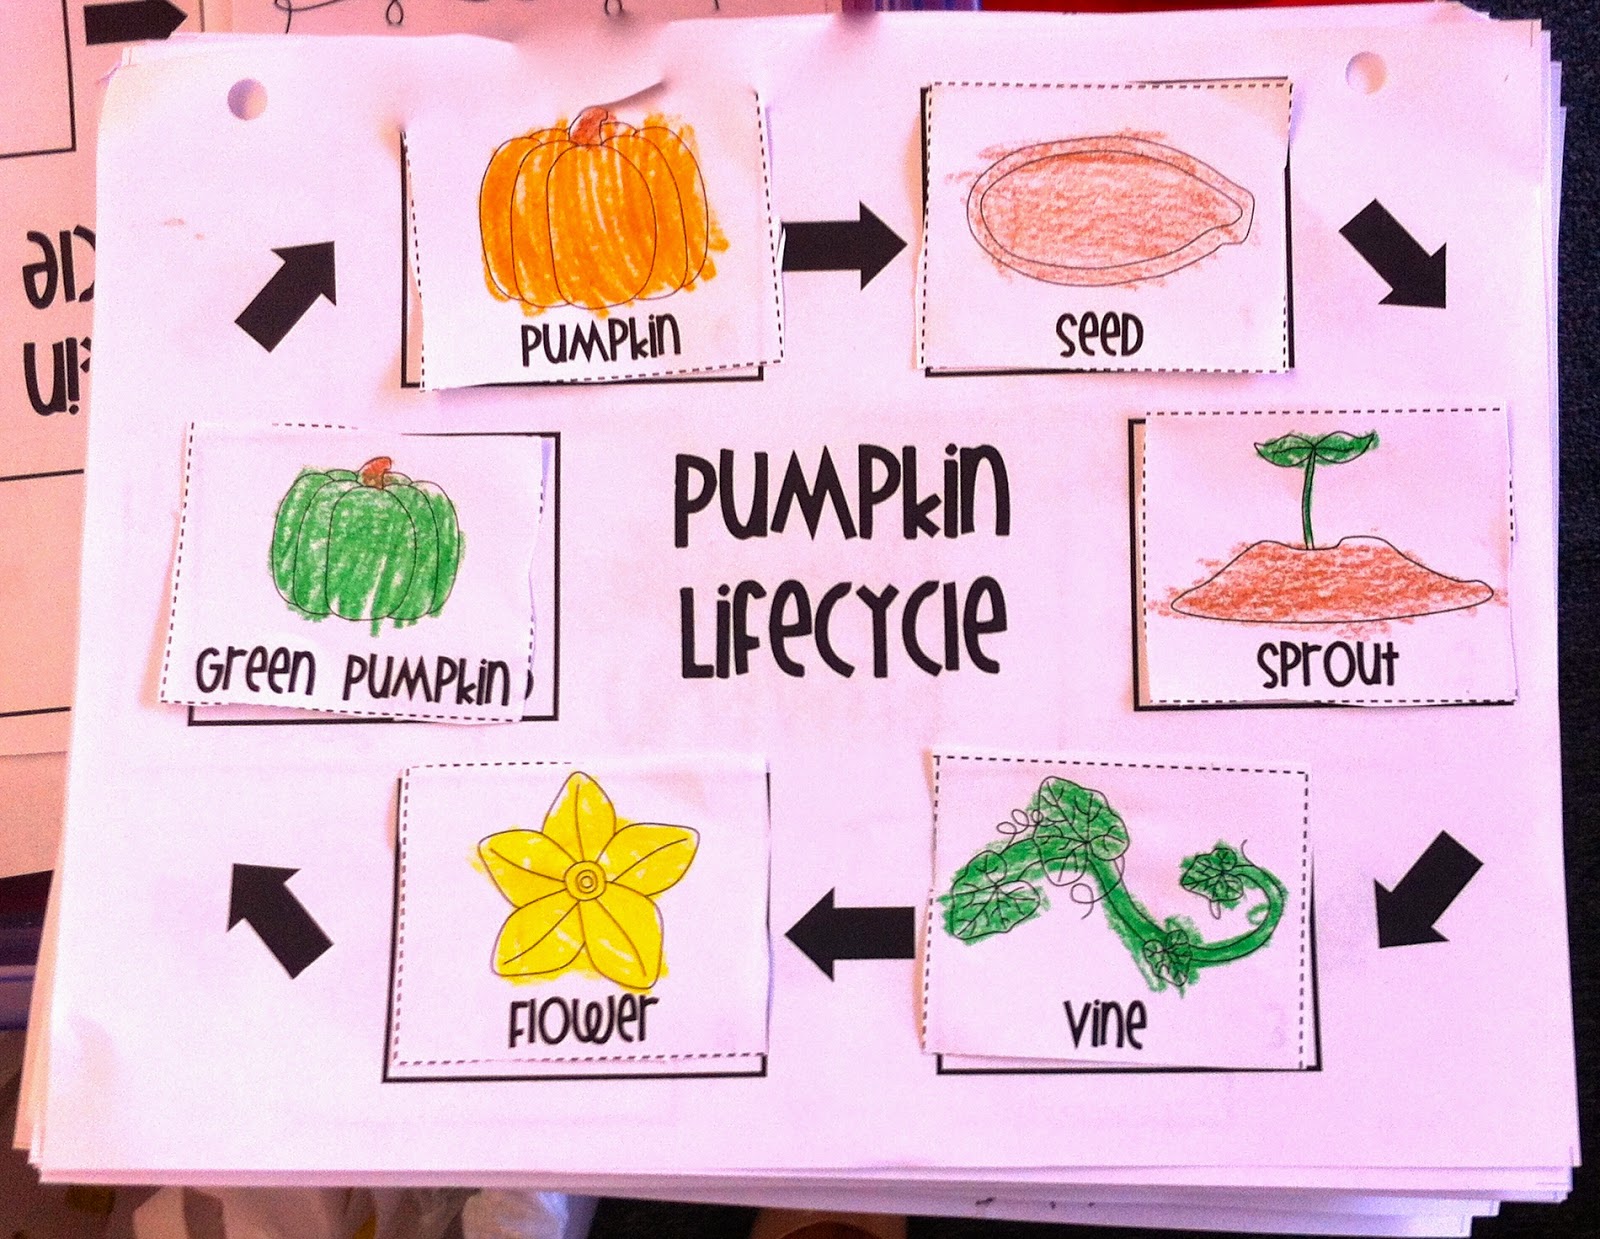 Pumpkin
Seed
Pumpkin
Lifecycle
Green Pumpkin
Sprout
Flower
Vine